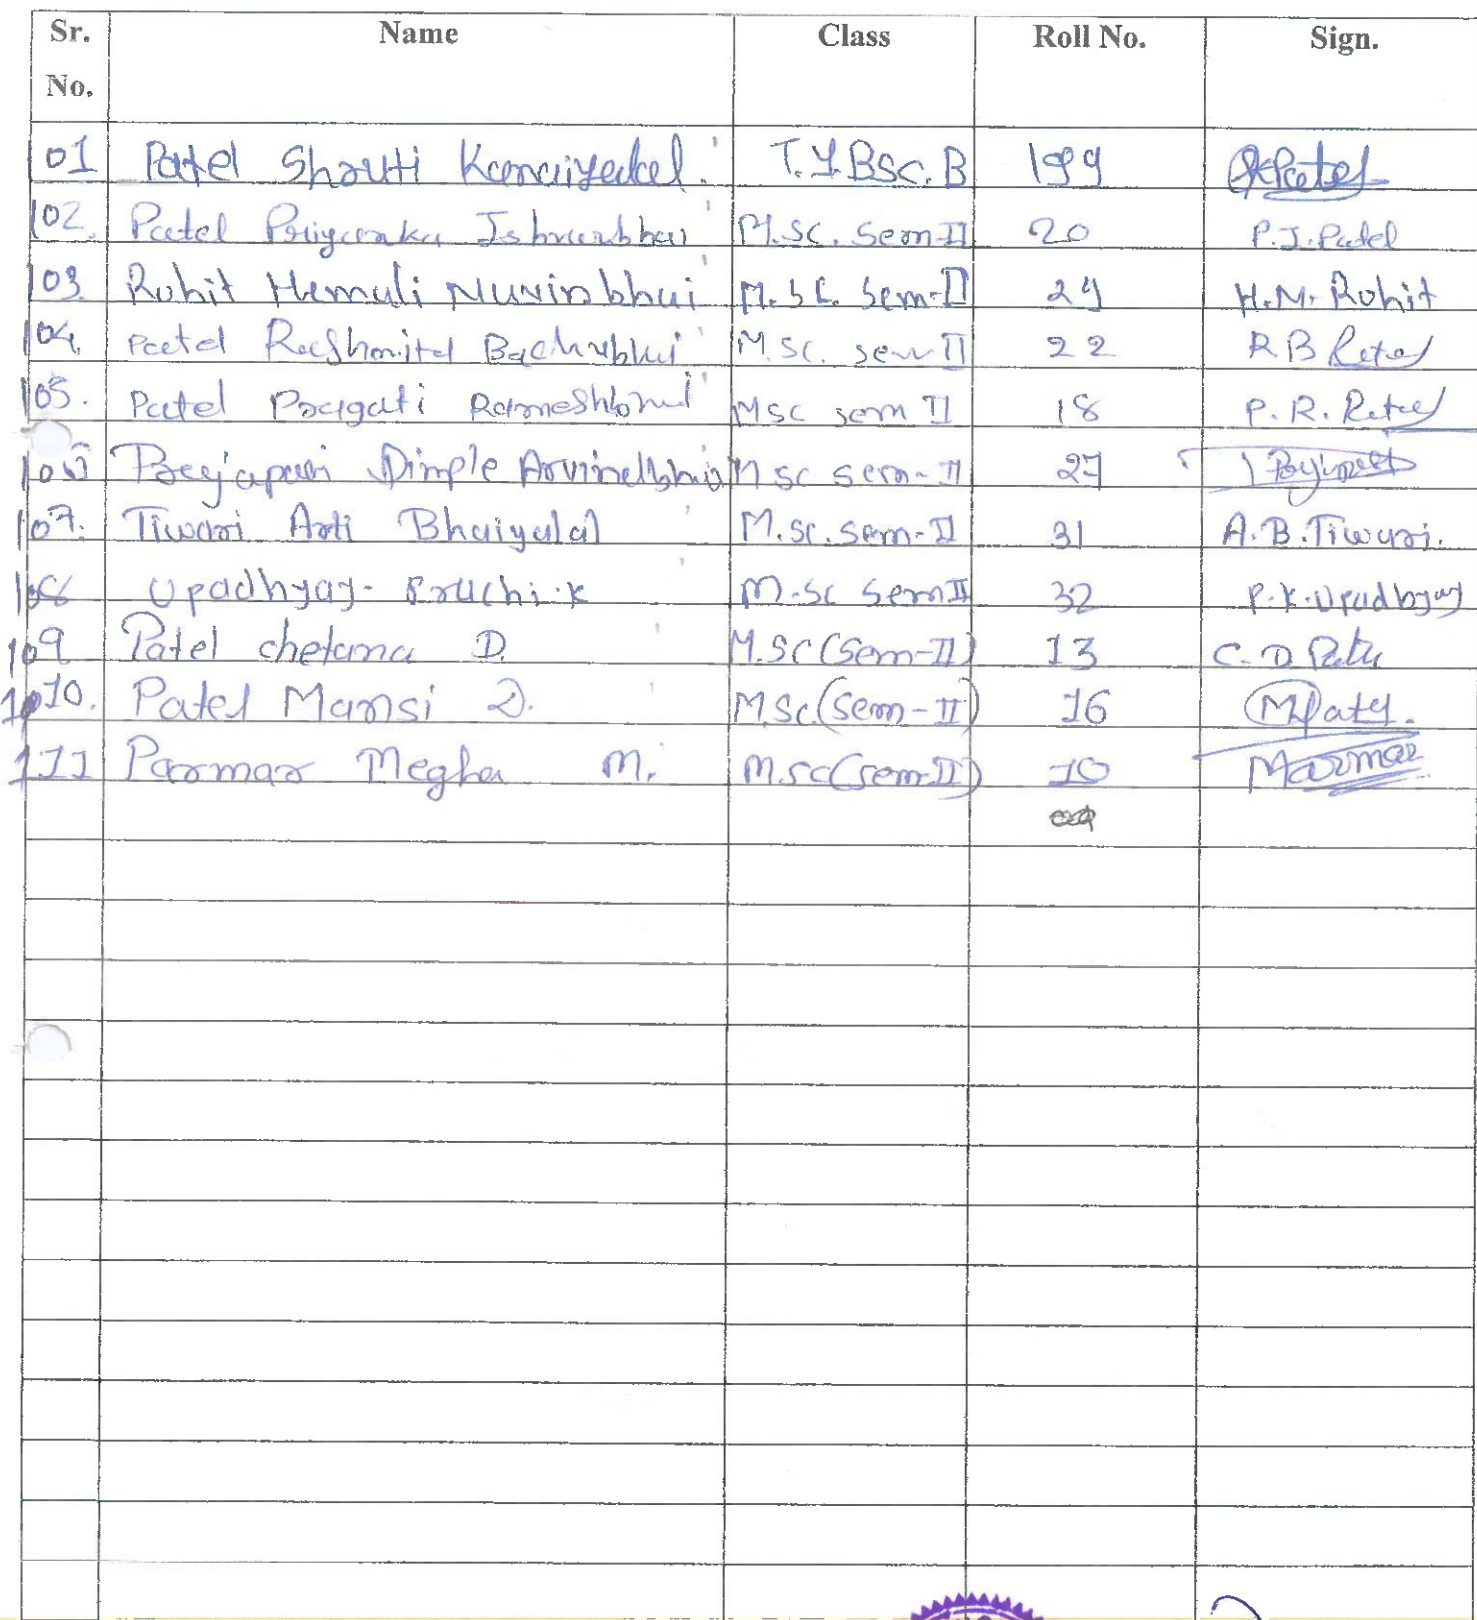 Sr. No. Name Class Roll No. Sign.
101 Patel Shruti Kanaiyalal T.Y.BSC.B 199
102. Patel Priyanka Ishvarbhai M.SC. Sem-II 20 P.I.Patel
103. Rohit Hemali Navinbhai M.SC. Sem-II 24 H.N. Rohit
104. Patel Rashmita Bachubhai M.SC. sem II 22 R B Patel
105. Patel Pragati Rameshbhai MSC sem II 18 P. R. Patel
106 Prajapati Dimple Arvindbhai M SC sem-II 27
107. Tiwari Arti Bhaiyalal M.SC. Sem-II 31 A.B.Tiwari.
108 Upadhyay Pruchi.K M.SC Sem II 32 P.K.Upadhyay
109 Patel chetana D. M.SC (Sem-II) 13 C. D Patel
110. Patel Mansi D. M.SC.(Sem-II) 16 MPatel.
111 Parmar Megha M. M.SC(sem-II) 10